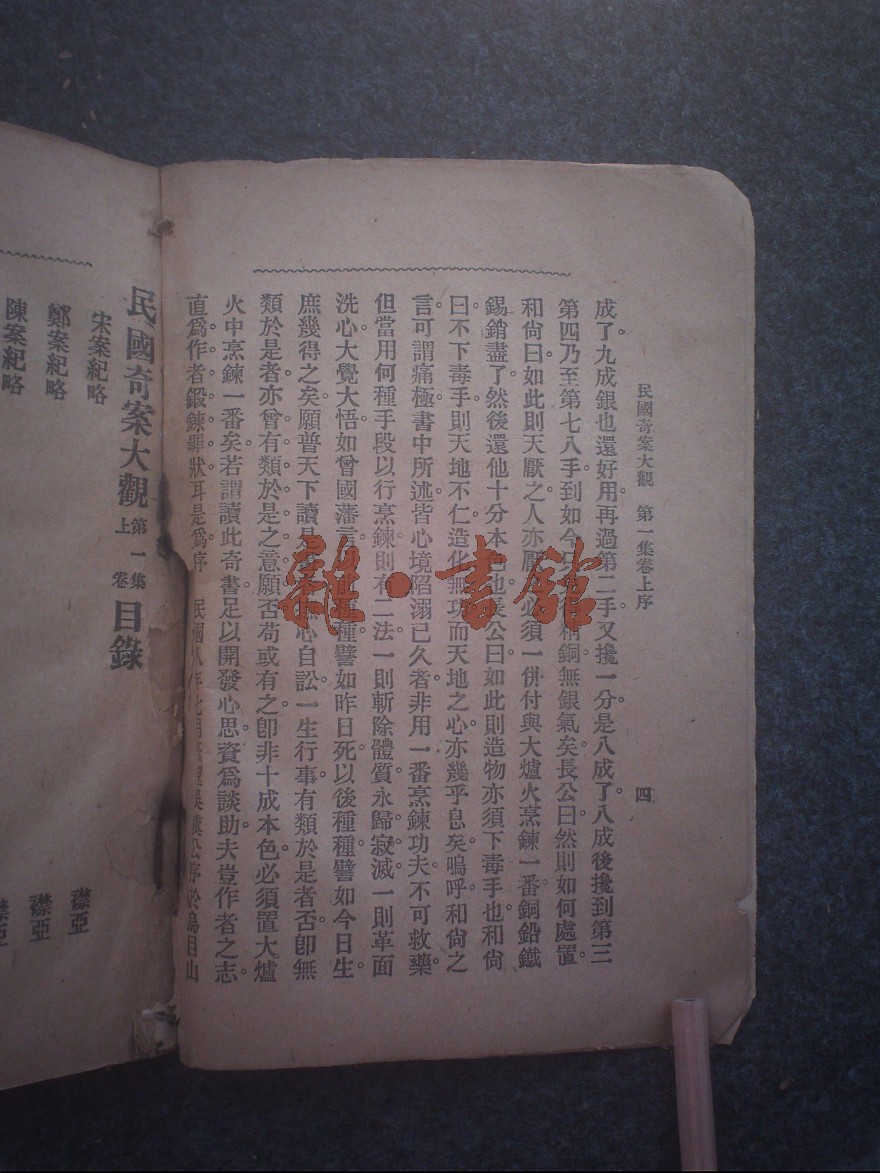 民國奇案大觀 第一集卷上序 四
成了。九成銀也還好用。再過第二手又攙一分是八成了。八成後攙到第三
第四乃至第七八手到如今只銅無銀氣矣。長公曰然則如何處置。
和尙曰如此則天厭之人亦厭必須一併付與大爐火烹鍊一番銅鉛鐵
錫銷盡了。然後還他十分本色也。長公曰如此則造物亦須下毒手也。和尙
曰不下毒手則天地不仁造化無功而天地之心亦幾乎息矣。嗚呼和尙之
言可謂痛極。書中所述皆心境陷溺已久者。非用一番烹鍊功夫不可救藥。
但當用何種手段以行烹鍊則有二法一則斬除體質永歸寂滅。一則革面
洗心大覺大悟如曾國藩言前種種譬如昨日死以後種種譬如今日生。
庶幾得之矣。願普天下讀是心自訟一生行事有類於是者否。卽無
類於是者。亦曾有類於是之意願否。苟或有之。卽非十成本色。必須置大爐
火中烹鍊一番矣。若謂讀此奇書足以開發心思資爲談助。夫豈作者之志。
直爲作者鍛鍊罪狀耳。是爲序 民國八年七月公序於烏目山
民國奇案大觀 第一集上卷 目錄
宋案紀略 襟亞
鄭案紀略 襟亞
陳案紀略 襟亞
雜·書館